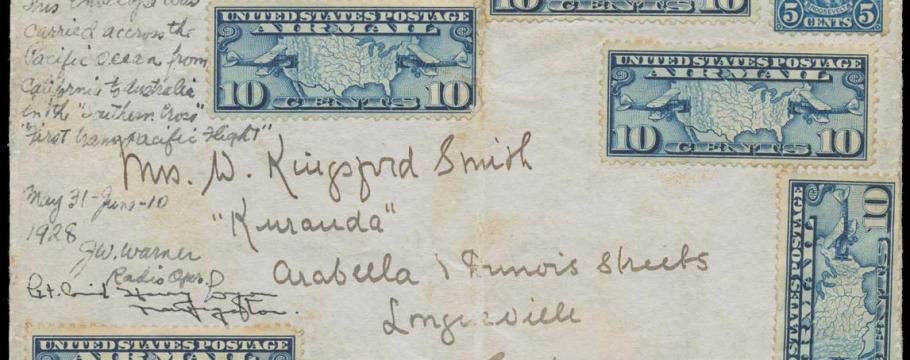 This Envelope was
carried accross the
Pacific Ocean from
California to Australia
in the "Southern Cross"
"First transpacific Flight"
May 31-June-10
1928
J.W. Warner
Radio Oper.
Lt. Comd. Harry Lyon
Navigator.
UNITED STATES POSTAGE
AIR MAIL
10 CENTS 10
5 CENTS 5
UNITED STATES POSTAGE
AIR MAIL
10 CENTS 10
Mrs. W. Kingsford Smith
"Kuranda"
Arabella Streets
Longueville
UNITED STATES POSTAGE
AIR MAIL
10
UNITED STATES POSTAGE
AIR MAIL